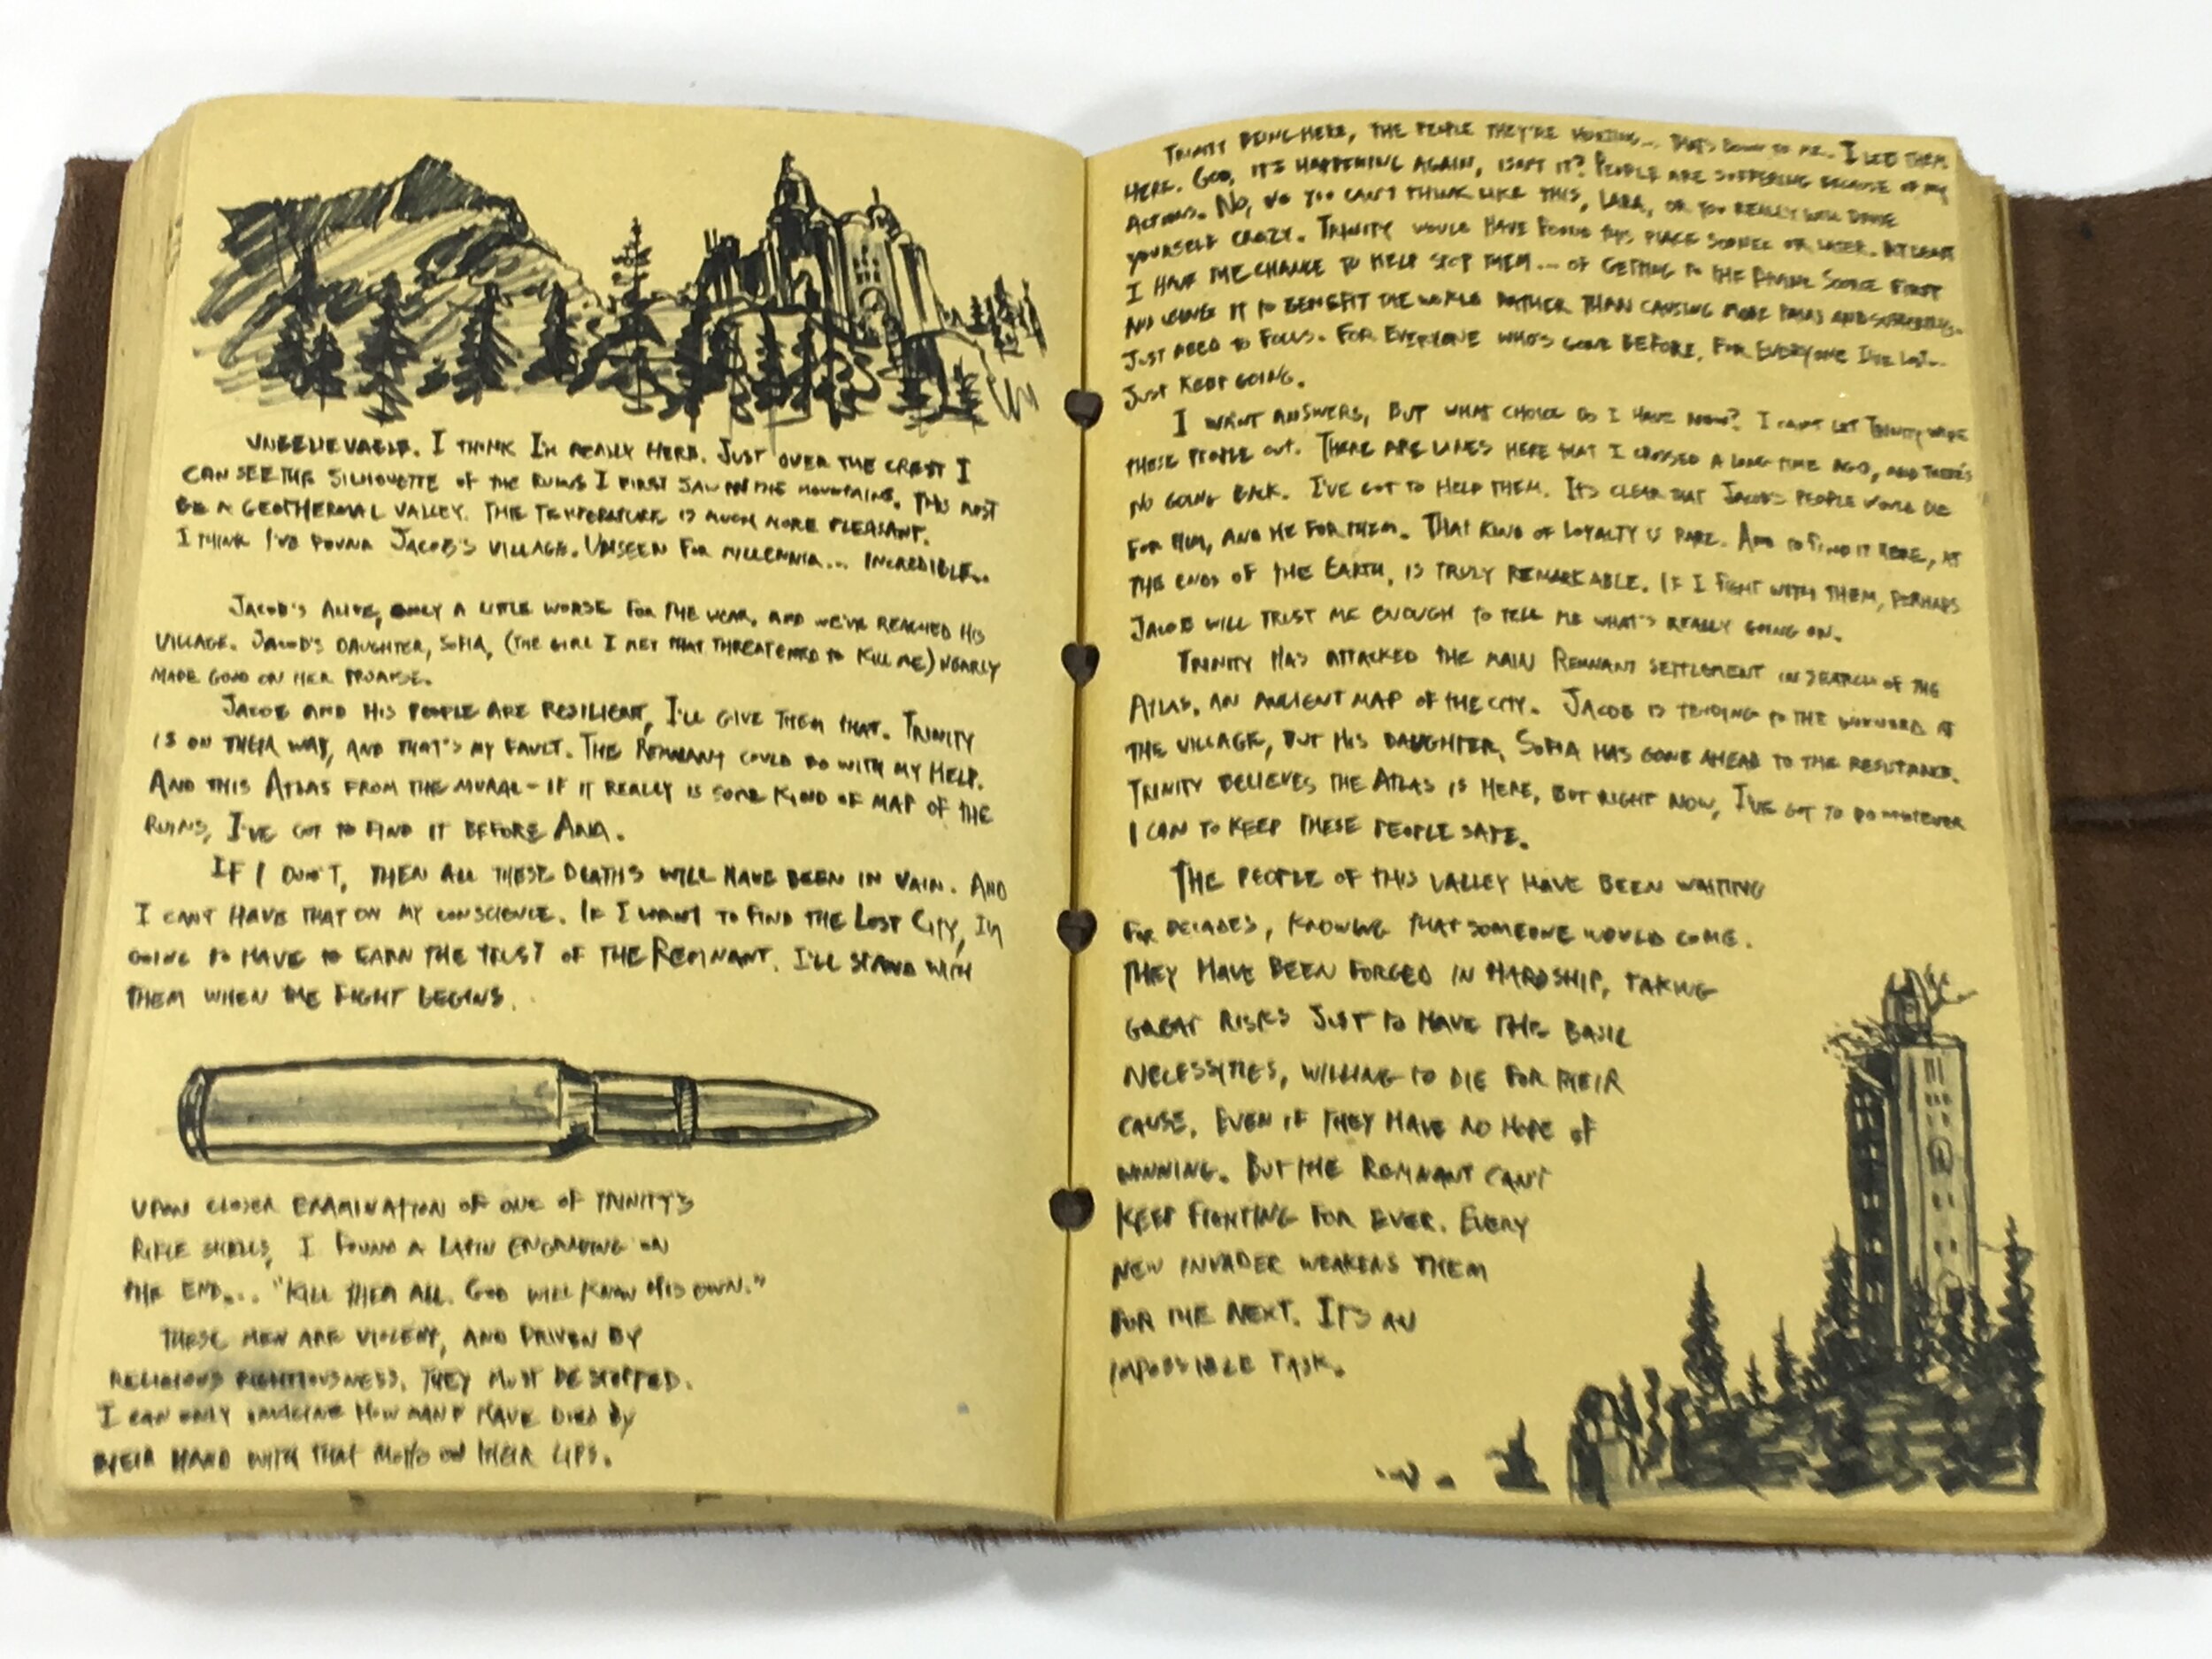 UNBELIEVABLE. I THINK I'M REALLY HERE. JUST OVER THE CREST I
CAN SEE THE SILHOUETTE OF THE RUINS I FIRST SAW IN THE MOUNTAINS. THIS MUST
BE A GEOTHERMAL VALLEY. THE TEMPERATURE IS MUCH MORE PLEASANT.
I THINK I'VE FOUND JACOB'S VILLAGE. UNSEEN FOR MILLENNIA... INCREDIBLE..
JACOB'S ALIVE, ONLY A LITTLE WORSE FOR THE WEAR, AND WE'VE REACHED HIS
VILLAGE. JACOB'S DAUGHTER, SOFIA, (THE GIRL I MET THAT THREATENED TO KILL ME) NEARLY
MADE GOOD ON HER PROMISE.
JACOB AND HIS PEOPLE ARE RESILIENT, I'LL GIVE THEM THAT. TRINITY
IS ON THEIR WAY, AND THAT'S MY FAULT. THE REMNANT COULD DO WITH MY HELP.
AND THIS ATLAS FROM THE MURAL - IF IT REALLY IS SOME KIND OF MAP OF THE
RUINS, I'VE GOT TO FIND IT BEFORE ANA.
IF I DON'T, THEN ALL THESE DEATHS WILL HAVE BEEN IN VAIN. AND
I CAN'T HAVE THAT ON MY CONSCIENCE. IF I WANT TO FIND THE LOST CITY, I'M
GOING TO HAVE TO EARN THE TRUST OF THE REMNANT. I'LL STAND WITH
THEM WHEN THE FIGHT BEGINS.
UPON CLOSER EXAMINATION OF ONE OF TRINITY'S
RIFLE SHELLS, I FOUND A LATIN ENGRAVING ON
THE END... "KILL THEM ALL. GOD WILL KNOW HIS OWN."
THESE MEN ARE VIOLENT, AND DRIVEN BY
RELIGIOUS RIGHTIOUSNESS. THEY MUST BE STOPPED.
I CAN ONLY IMAGINE HOW MANY HAVE DIED BY
THEIR HAND WITH THAT MOTTO ON THEIR LIPS.
TRINITY BEING HERE, THE PEOPLE THEY'RE HURTING... THAT'S DOWN TO ME. I LED THEM
HERE. GOD, IT'S HAPPENING AGAIN, ISN'T IT? PEOPLE ARE SUFFERING BECAUSE OF MY
ACTIONS. NO, NO YOU CAN'T THINK LIKE THIS, LARA, OR YOU REALLY WILL DRIVE
YOURSELF CRAZY. TRINITY WOULD HAVE FOUND THIS PLACE SOONER OR LATER. AT LEAST
I HAVE THE CHANCE TO HELP STOP THEM... OF GETTING TO THE DIVINE SOURCE FIRST
AND USING IT TO BENEFIT THE WORLD RATHER THAN CAUSING MORE PAIN AND SUFFERING.
JUST NEED TO FOCUS. FOR EVERYONE WHO'S GONE BEFORE, FOR EVERYONE I'VE LOST...
JUST KEEP GOING.
I WANT ANSWERS, BUT WHAT CHOICE DO I HAVE NOW? I CAN'T LET TRINITY WIPE
THESE PEOPLE OUT. THERE ARE LINES HERE THAT I CROSSED A LONG TIME AGO, AND THERE'S
NO GOING BACK. I'VE GOT TO HELP THEM. IT'S CLEAR THAT JACOB'S PEOPLE WOULD DIE
FOR HIM, AND HE FOR THEM. THAT KIND OF LOYALTY IS RARE. AND TO FIND IT HERE, AT
THE ENDS OF THE EARTH, IS TRULY REMARKABLE. IF I FIGHT WITH THEM, PERHAPS
JACOB WILL TRUST ME ENOUGH TO TELL ME WHAT'S REALLY GOING ON.
TRINITY HAS ATTACKED THE MAIN REMNANT SETTLEMENT IN SEARCH OF THE
ATLAS, AN ANCIENT MAP OF THE CITY. JACOB IS TENDING TO THE WOUNDED AT
THE VILLAGE, BUT HIS DAUGHTER, SOFIA HAS GONE AHEAD TO THE RESISTANCE.
TRINITY BELIEVES THE ATLAS IS HERE, BUT RIGHT NOW, I'VE GOT TO DO WHATEVER
I CAN TO KEEP THESE PEOPLE SAFE.
THE PEOPLE OF THIS VALLEY HAVE BEEN WAITING
FOR DECADES, KNOWING THAT SOMEONE WOULD COME.
THEY HAVE BEEN FORGED IN HARDSHIP, TAKING
GREAT RISKS JUST TO HAVE THE BASIC
NECESSITIES, WILLING TO DIE FOR THEIR
CAUSE, EVEN IF THEY HAVE NO HOPE OF
WINNING. BUT THE REMNANT CAN'T
KEEP FIGHTING FOR EVER. EVERY
NEW INVADER WEAKENS THEM
FOR THE NEXT. IT'S AN
IMPOSSIBLE TASK.